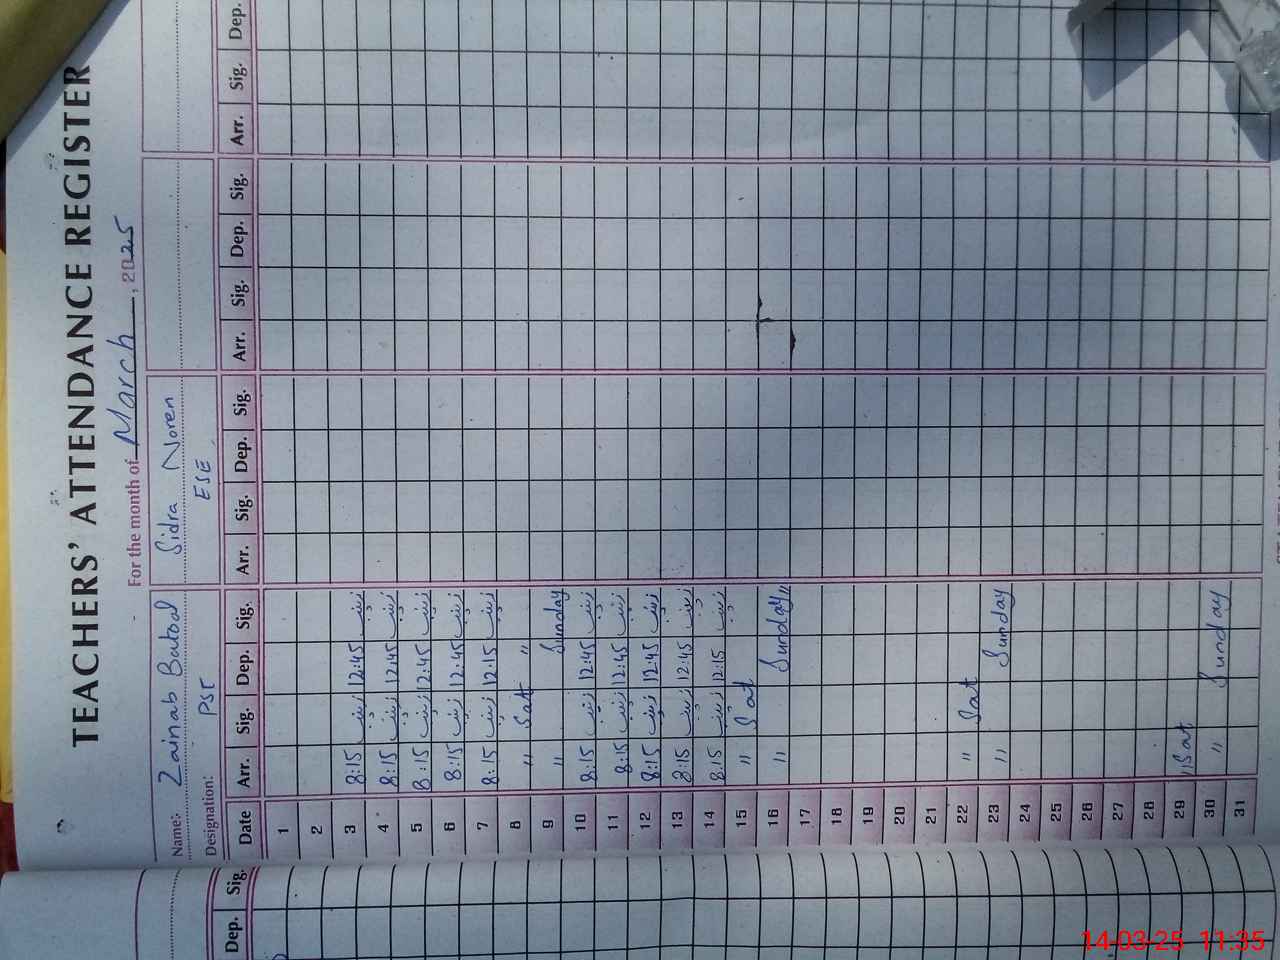 TEACHERS' ATTENDANCE REGISTER
For the month of March, 2025
Name: Zainab Batool Sidra Noren
Designation: PST ESE
Dep. Sig. Date Arr. Sig. Dep. Sig. Arr. Sig. Dep. Sig. Arr. Sig. Dep. Sig. Arr. Sig. Dep.
1
2
3 8:15 زینب 12:45 زینب
4 8:15 زینب 12:45 زینب
5 8:15 زینب 12:45 زینب
6 8:15 زینب 12:45 زینب
7 8:15 زینب 12:15 زینب
8 " Sat "
9 " Sunday
10 8:15 زینب 12:45 زینب
11 8:15 زینب 12:45 زینب
12 8:15 زینب 12:45 زینب
13 8:15 زینب 12:45 زینب
14 8:15 زینب 12:15 زینب
15 " Sat
16 " Sunday "
17
18
19
20
21
22 " Sat
23 " Sunday
24
25
26
27
28
29 " Sat
30 " Sunday
31
14-03-25 11:35